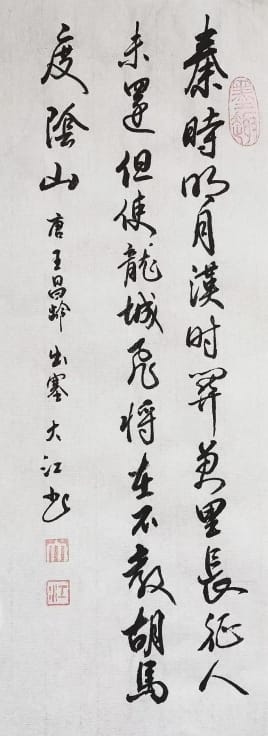 秦時明月漢时關萬里長征人
未還但使龍城飛將在不教胡馬
度陰山
唐王昌龄出塞大江书
大
江